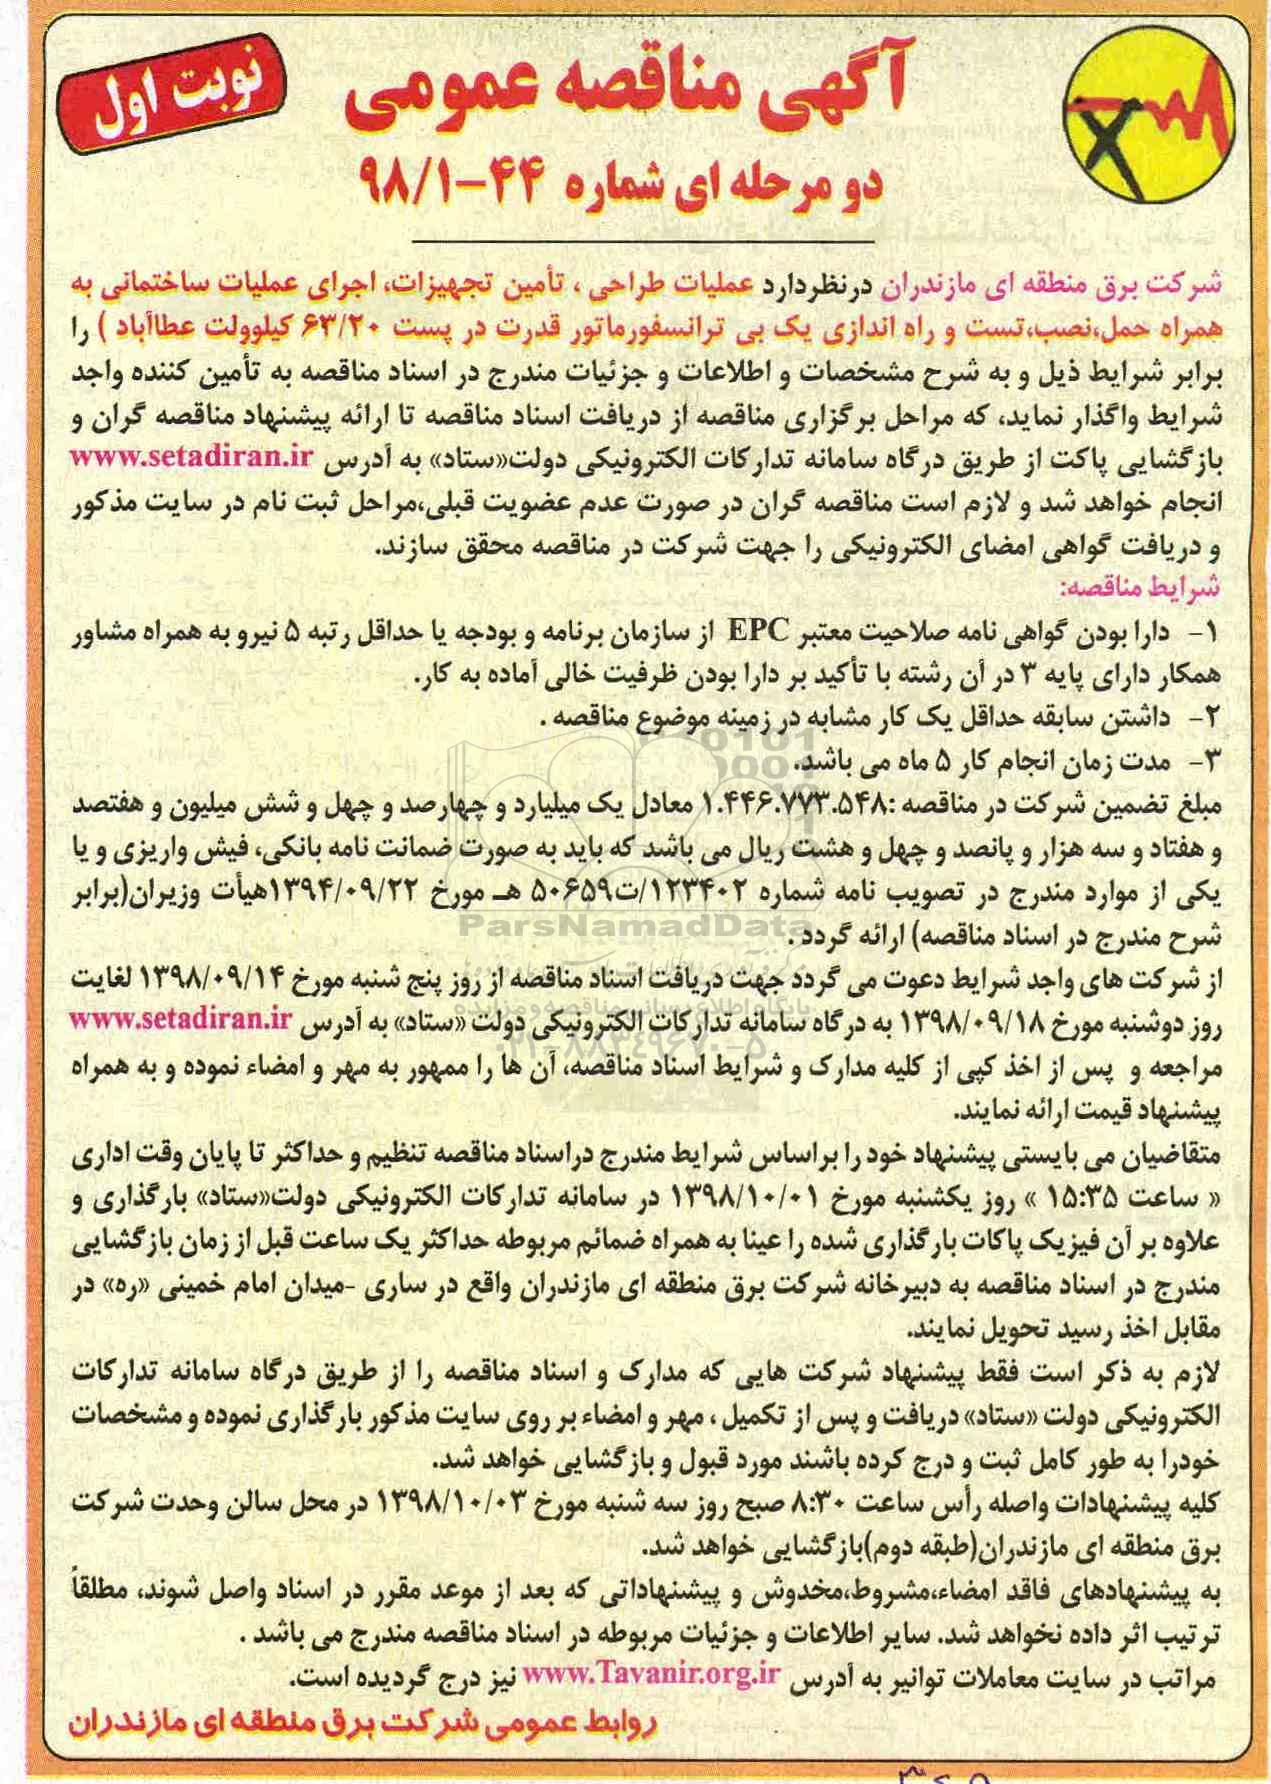 نوبت اول
آگهی مناقصه عمومی
دو مرحله ای شماره ۴۴-۹۸/۱
شرکت برق منطقه ای مازندران درنظردارد عملیات طراحی ، تأمین تجهیزات، اجرای عملیات ساختمانی به
همراه حمل،نصب،تست و راه اندازی یک بی ترانسفورماتور قدرت در پست ۶۳/۲۰ کیلوولت عطاآباد ) را
برابر شرایط ذیل و به شرح مشخصات و اطلاعات و جزئیات مندرج در اسناد مناقصه به تأمین کننده واجد
شرایط واگذار نماید، که مراحل برگزاری مناقصه از دریافت اسناد مناقصه تا ارائه پیشنهاد مناقصه گران و
بازگشایی پاکت از طریق درگاه سامانه تدارکات الکترونیکی دولت«ستاد» به آدرس www.setadiran.ir
انجام خواهد شد و لازم است مناقصه گران در صورت عدم عضویت قبلی،مراحل ثبت نام در سایت مذکور
و دریافت گواهی امضای الکترونیکی را جهت شرکت در مناقصه محقق سازند.
شرایط مناقصه:
۱- دارا بودن گواهی نامه صلاحیت معتبر EPC از سازمان برنامه و بودجه یا حداقل رتبه ۵ نیرو به همراه مشاور
همکار دارای پایه ۳ در آن رشته با تأکید بر دارا بودن ظرفیت خالی آماده به کار.
۲- داشتن سابقه حداقل یک کار مشابه در زمینه موضوع مناقصه .
۳- مدت زمان انجام کار ۵ ماه می باشد.
مبلغ تضمین شرکت در مناقصه :۱.۴۴۶.۷۷۳.۵۴۸ معادل یک میلیارد و چهارصد و چهل و شش میلیون و هفتصد
و هفتاد و سه هزار و پانصد و چهل و هشت ریال می باشد که باید به صورت ضمانت نامه بانکی، فیش واریزی و یا
یکی از موارد مندرج در تصویب نامه شماره ۱۲۳۴۰۲/ت۵۰۶۵۹ هـ مورخ ۱۳۹۴/۰۹/۲۲هیأت وزیران(برابر
شرح مندرج در اسناد مناقصه) ارائه گردد .
از شرکت های واجد شرایط دعوت می گردد جهت دریافت اسناد مناقصه از روز پنج شنبه مورخ ۱۳۹۸/۰۹/۱۴ لغایت
روز دوشنبه مورخ ۱۳۹۸/۰۹/۱۸ به درگاه سامانه تدارکات الکترونیکی دولت «ستاد» به آدرس www.setadiran.ir
مراجعه و پس از اخذ کپی از کلیه مدارک و شرایط اسناد مناقصه، آن ها را ممهور به مهر و امضاء نموده و به همراه
پیشنهاد قیمت ارائه نمایند.
متقاضیان می بایستی پیشنهاد خود را براساس شرایط مندرج دراسناد مناقصه تنظیم و حداکثر تا پایان وقت اداری
« ساعت ۱۵:۳۵ » روز یکشنبه مورخ ۱۳۹۸/۱۰/۰۱ در سامانه تدارکات الکترونیکی دولت«ستاد» بارگذاری و
علاوه بر آن فیزیک پاکات بارگذاری شده را عینا به همراه ضمائم مربوطه حداکثر یک ساعت قبل از زمان بازگشایی
مندرج در اسناد مناقصه به دبیرخانه شرکت برق منطقه ای مازندران واقع در ساری -میدان امام خمینی «ره» در
مقابل اخذ رسید تحویل نمایند.
لازم به ذکر است فقط پیشنهاد شرکت هایی که مدارک و اسناد مناقصه را از طریق درگاه سامانه تدارکات
الکترونیکی دولت «ستاد» دریافت و پس از تکمیل ، مهر و امضاء بر روی سایت مذکور بارگذاری نموده و مشخصات
خودرا به طور کامل ثبت و درج کرده باشند مورد قبول و بازگشایی خواهد شد.
کلیه پیشنهادات واصله رأس ساعت ۸:۳۰ صبح روز سه شنبه مورخ ۱۳۹۸/۱۰/۰۳ در محل سالن وحدت شرکت
برق منطقه ای مازندران(طبقه دوم)بازگشایی خواهد شد.
به پیشنهادهای فاقد امضاء،مشروط،مخدوش و پیشنهاداتی که بعد از موعد مقرر در اسناد واصل شوند، مطلقاً
ترتیب اثر داده نخواهد شد. سایر اطلاعات و جزئیات مربوطه در اسناد مناقصه مندرج می باشد .
مراتب در سایت معاملات توانیر به آدرس www.Tavanir.org.ir نیز درج گردیده است.
روابط عمومی شرکت برق منطقه ای مازندران
ParsNamadData
پایگاه اطلاع رسانی مناقصه و مزایده
۰۲۱-۸۸۳۴۹۶۷۰-۵